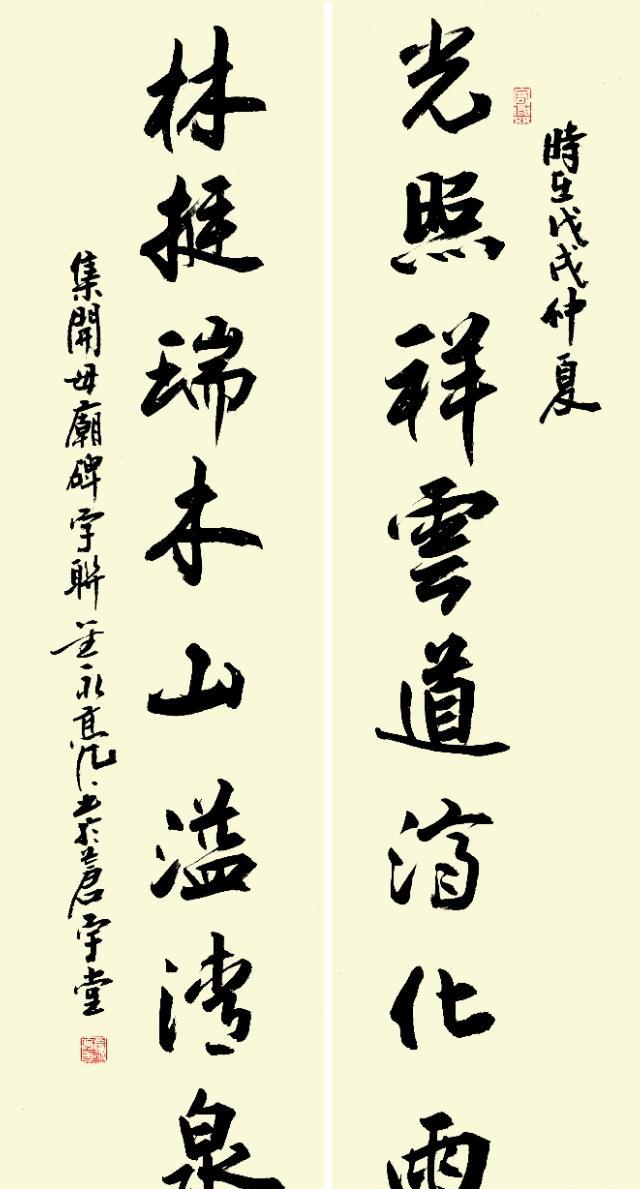 時在戊戌仲夏
光照祥雲道濟化雨
林挺瑞木山溢清泉
集開母廟碑字聯 書於蒼宇堂